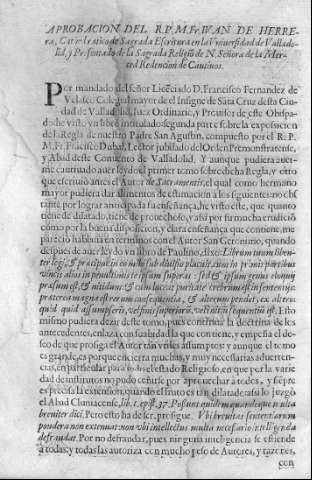 APROBACION DEL R.P.M.Fr. IVAN DE HERRE-
ra, Catedratico de Sagrada Escritura en la Vniuersidad de Vallado-
lid, y Presentado de la Sagrada Religiō de N. Señora de la Mer-
ced Redencion de Cautiuos.
Por mandado del señor Licēciado D. Francisco Fernandez de
Velasco, Colegial mayor de el Insigne de Sāta Cruz desta Ciu-
dad de Valladolid, Iuez Ordinario, y Prouisor de este Obispa-
do, he visto, vn libro intitulado segunda parte sobre la exposicion
de la Regla de nuestro Padre San Agustin, compuesto por el R. P.
M. Fr. Frācisco Dubal, Lector jubilado del Ordē Premonstratense,
y Abad deste Conuento de Valladolid. Y aunque pudiera auer-
me cautiuado auer leydo el primer tomo sobre dicha Regla, y otro
que escriuiò antes el Autor de Sacramentis, el qual como hermano
mayor pudiera dar alimentos de estimacion à los siguientes: no obs-
tante, por lograr anticipada su enseñança, he visto este, que quanto
tiene de dilatado, tiene de prouechoso, y assi por su mucha erudiciō
como por la buena disposicion, y clara enseñança que contiene, me
pareciò hablaua en terminos con el Autor San Geronimo, quando
despues de auer leydo vn libro de Paulino, dixo: Librum tuum liben-
ter legi, & præcipuè in eo
in primis partibus
vincis alios in penultimis te ipsum superas: sed & ipsum genus eloquij
præsum est, & nitidum: & cum luceat puritate crebrum est in sententijs:
præterea magna est rerum consequentia, & alterum pendet, ex altero:
quid quid assumpseris, vel finis superiorū, vel initiū sequentiū est. Esto
mismo pudiera dezir deste tomo, pues continua la doctrina de los
antecedentes, enlaza con suabidad la que contiene, y empeña el de-
seo de que prosiga el Autor tan vtiles assumptos: y aunque el tomo
es grande, es porque encierra muchas, y muy necessarias aduerten-
cias, en particular para todo el estado Religioso, en que por la varie-
dad de institutos no pudo ceñirse por aprouechar à todos, y siēpre
es precisa la extension, quando el fruto es tan dilatado: assi lo juzgò
el Abad Cluniacense, lib. 1. epist. 37. Possunt quidem quandoque multa
breuiter dici. Pero esto ha de ser, prosigue. Vbi breuitas sententiarum
pondera non extenuat: non vbi intellectus multa necessario intelligenda
defraudat. Por no defraudar, pues ninguna inteligencia se estiende
à todas; y todas las autoriza con mucho peso de Autores, y razones,
con